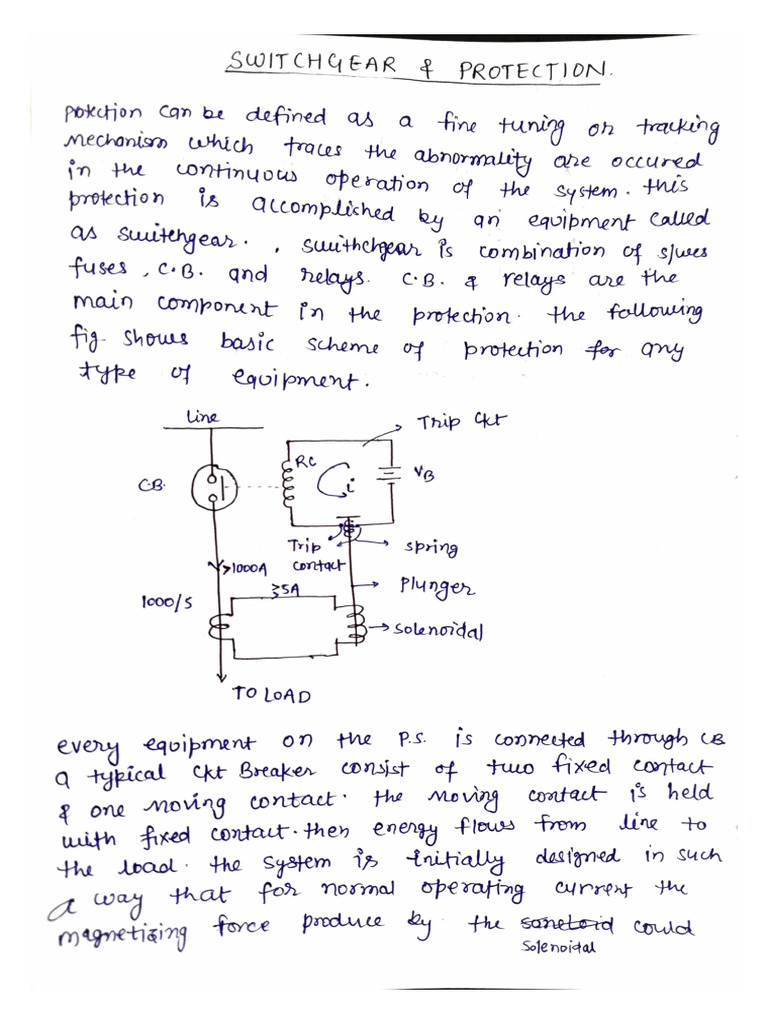 SWITCHGEAR & PROTECTION.
Potection can be defined as a fine tuning or tracking
Mechanism which traces the abnormality are occured
in the continuous operation of the system. this
protection is accomplished by an equipment called
as switchgear. , swithchgear is combination of s/wes
fuses, C.B. and relays. C.B. & relays are the
main component in the protection. the following
fig. shows basic scheme of protection for any
type of equipment.
Line
Trip ckt
RC
i
VB
C.B.
Trip contact
spring
>1000A
≥5A
Plunger
1000/5
Solenoidal
TO LOAD
every equipment on the P.S. is connected through CB
a typical ckt Breaker consist of two fixed contact
& one moving contact. the moving contact is held
with fixed contact. then energy flows from line to
the load. the system is initially designed in such
a way that for normal operating current the
magnetizing force produce by the soneloid could
solenoidal